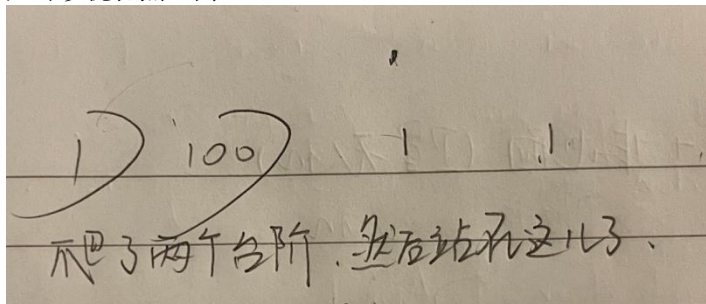 1 100 1 1
爬了两个台阶.然后站在这儿了.